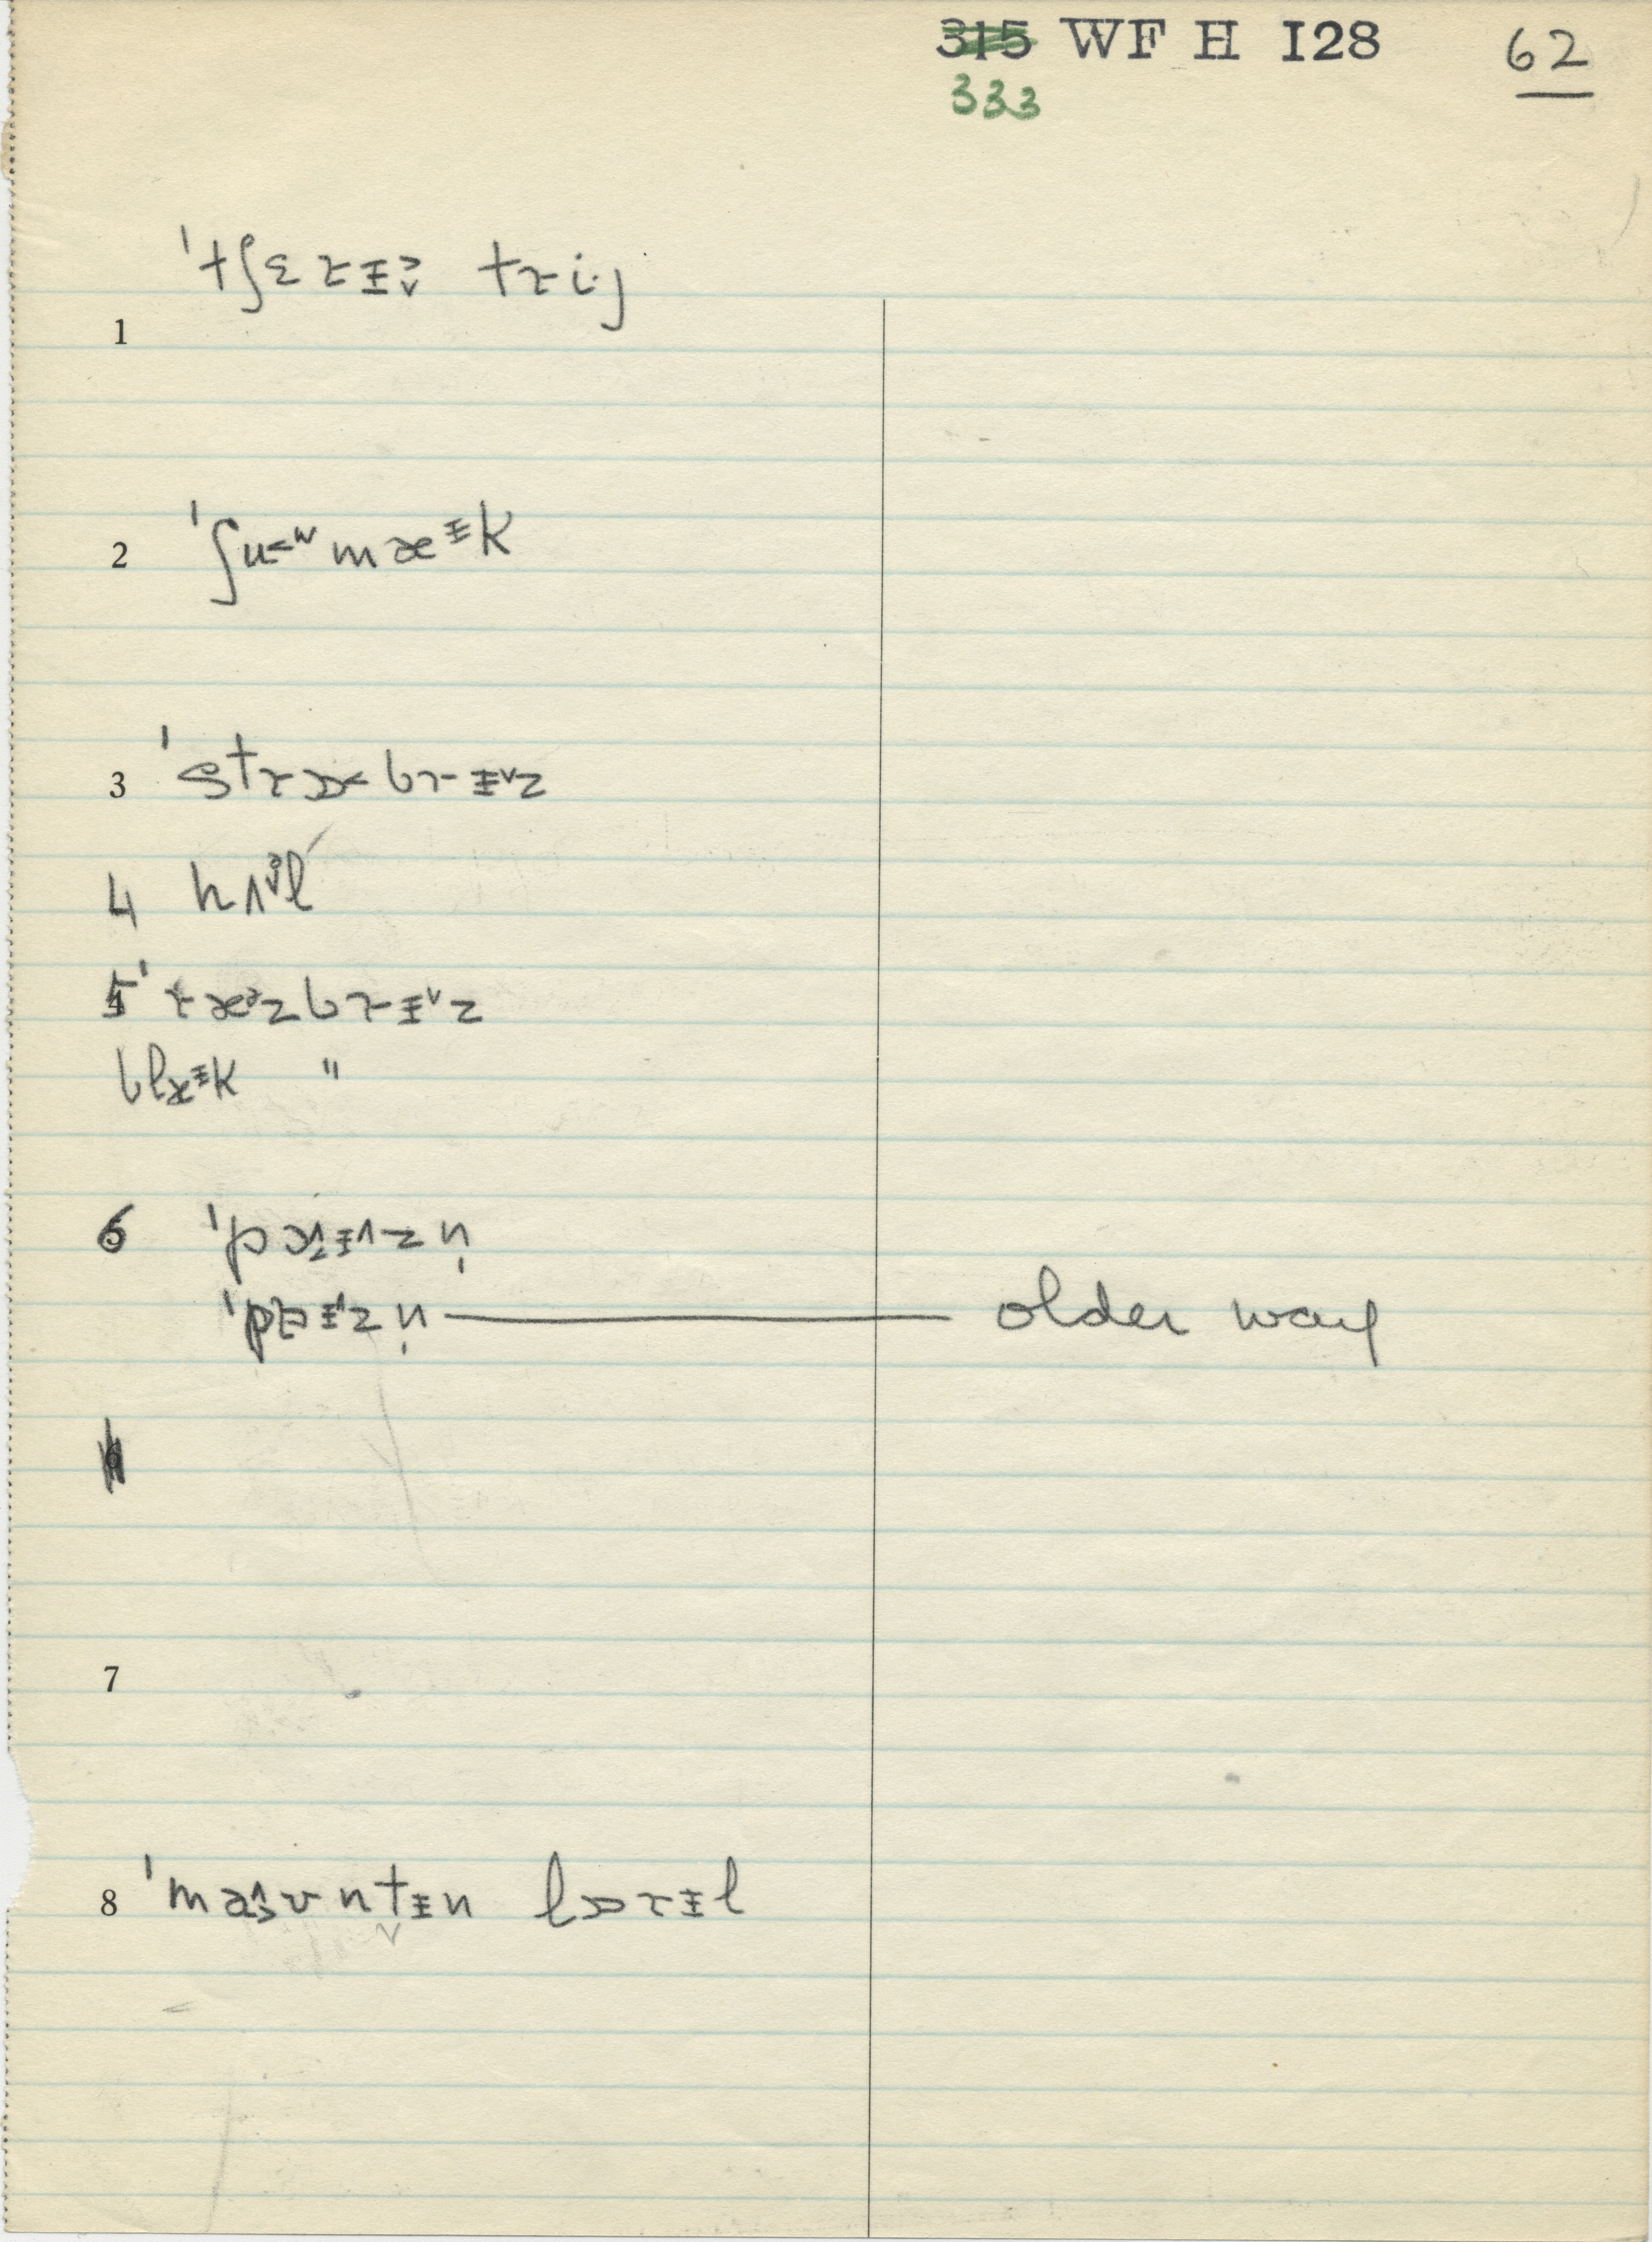 315 WF H I28 62
333
ˈtʃɛrɪ̵ː trij
1
2 ˈʃu˂ʷmæᵻk
3 ˈstrɒ˂brᵻ˅z
4 hʌᵊl
5 ˈræᵊzbrᵻ˅z
blæᵻk "
6 ˈpɑᵻ˄zn̩
ˈpɒᵻ˄zn̩ — older way
7
8 ˈmaʊntᵻn lɒrᵻl